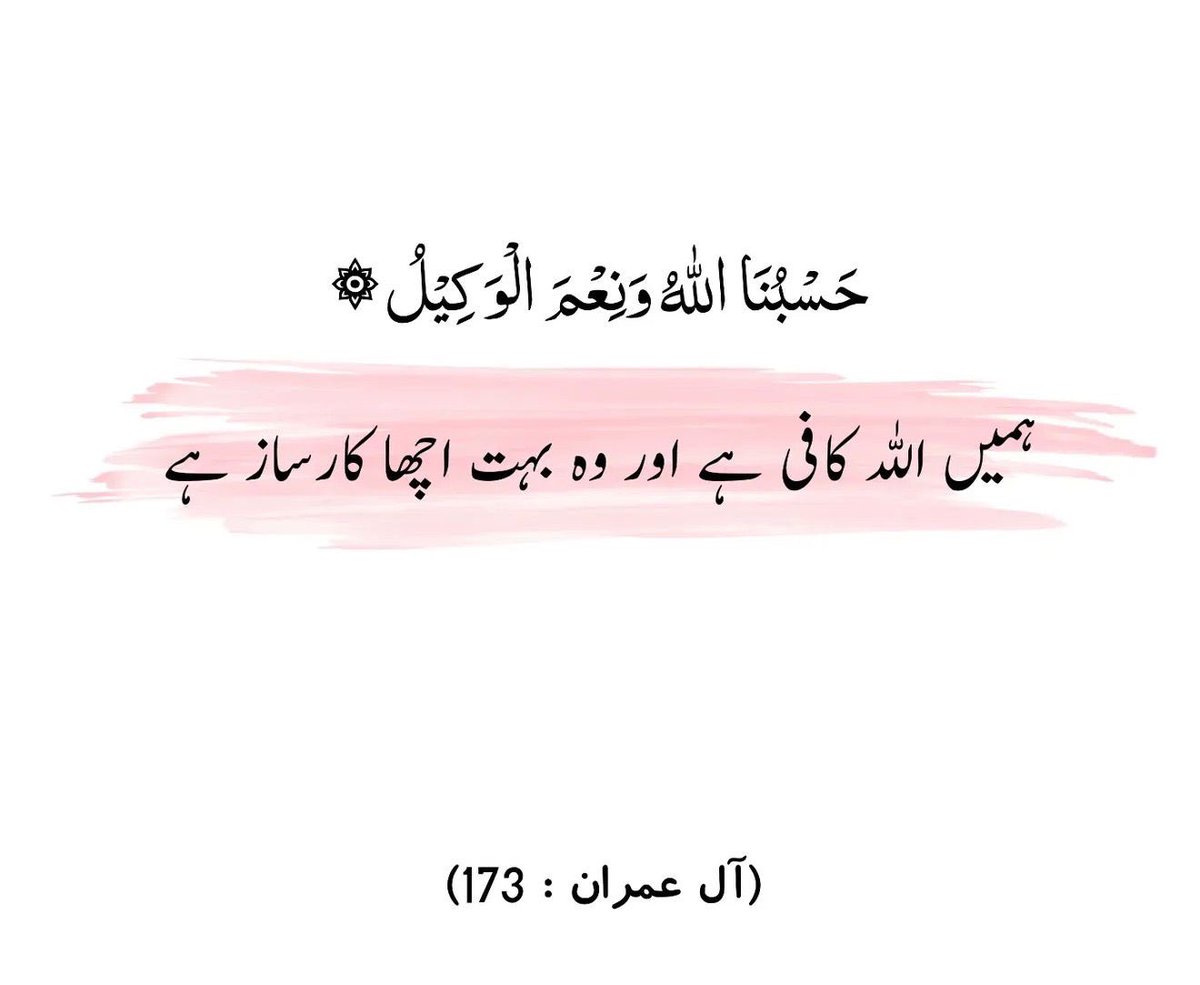 حَسْبُنَا اللّٰهُ وَنِعْمَ الْوَكِيْلُ ۞
ہمیں اللہ کافی ہے اور وہ بہت اچھا کارساز ہے
(آل عمران : 173)